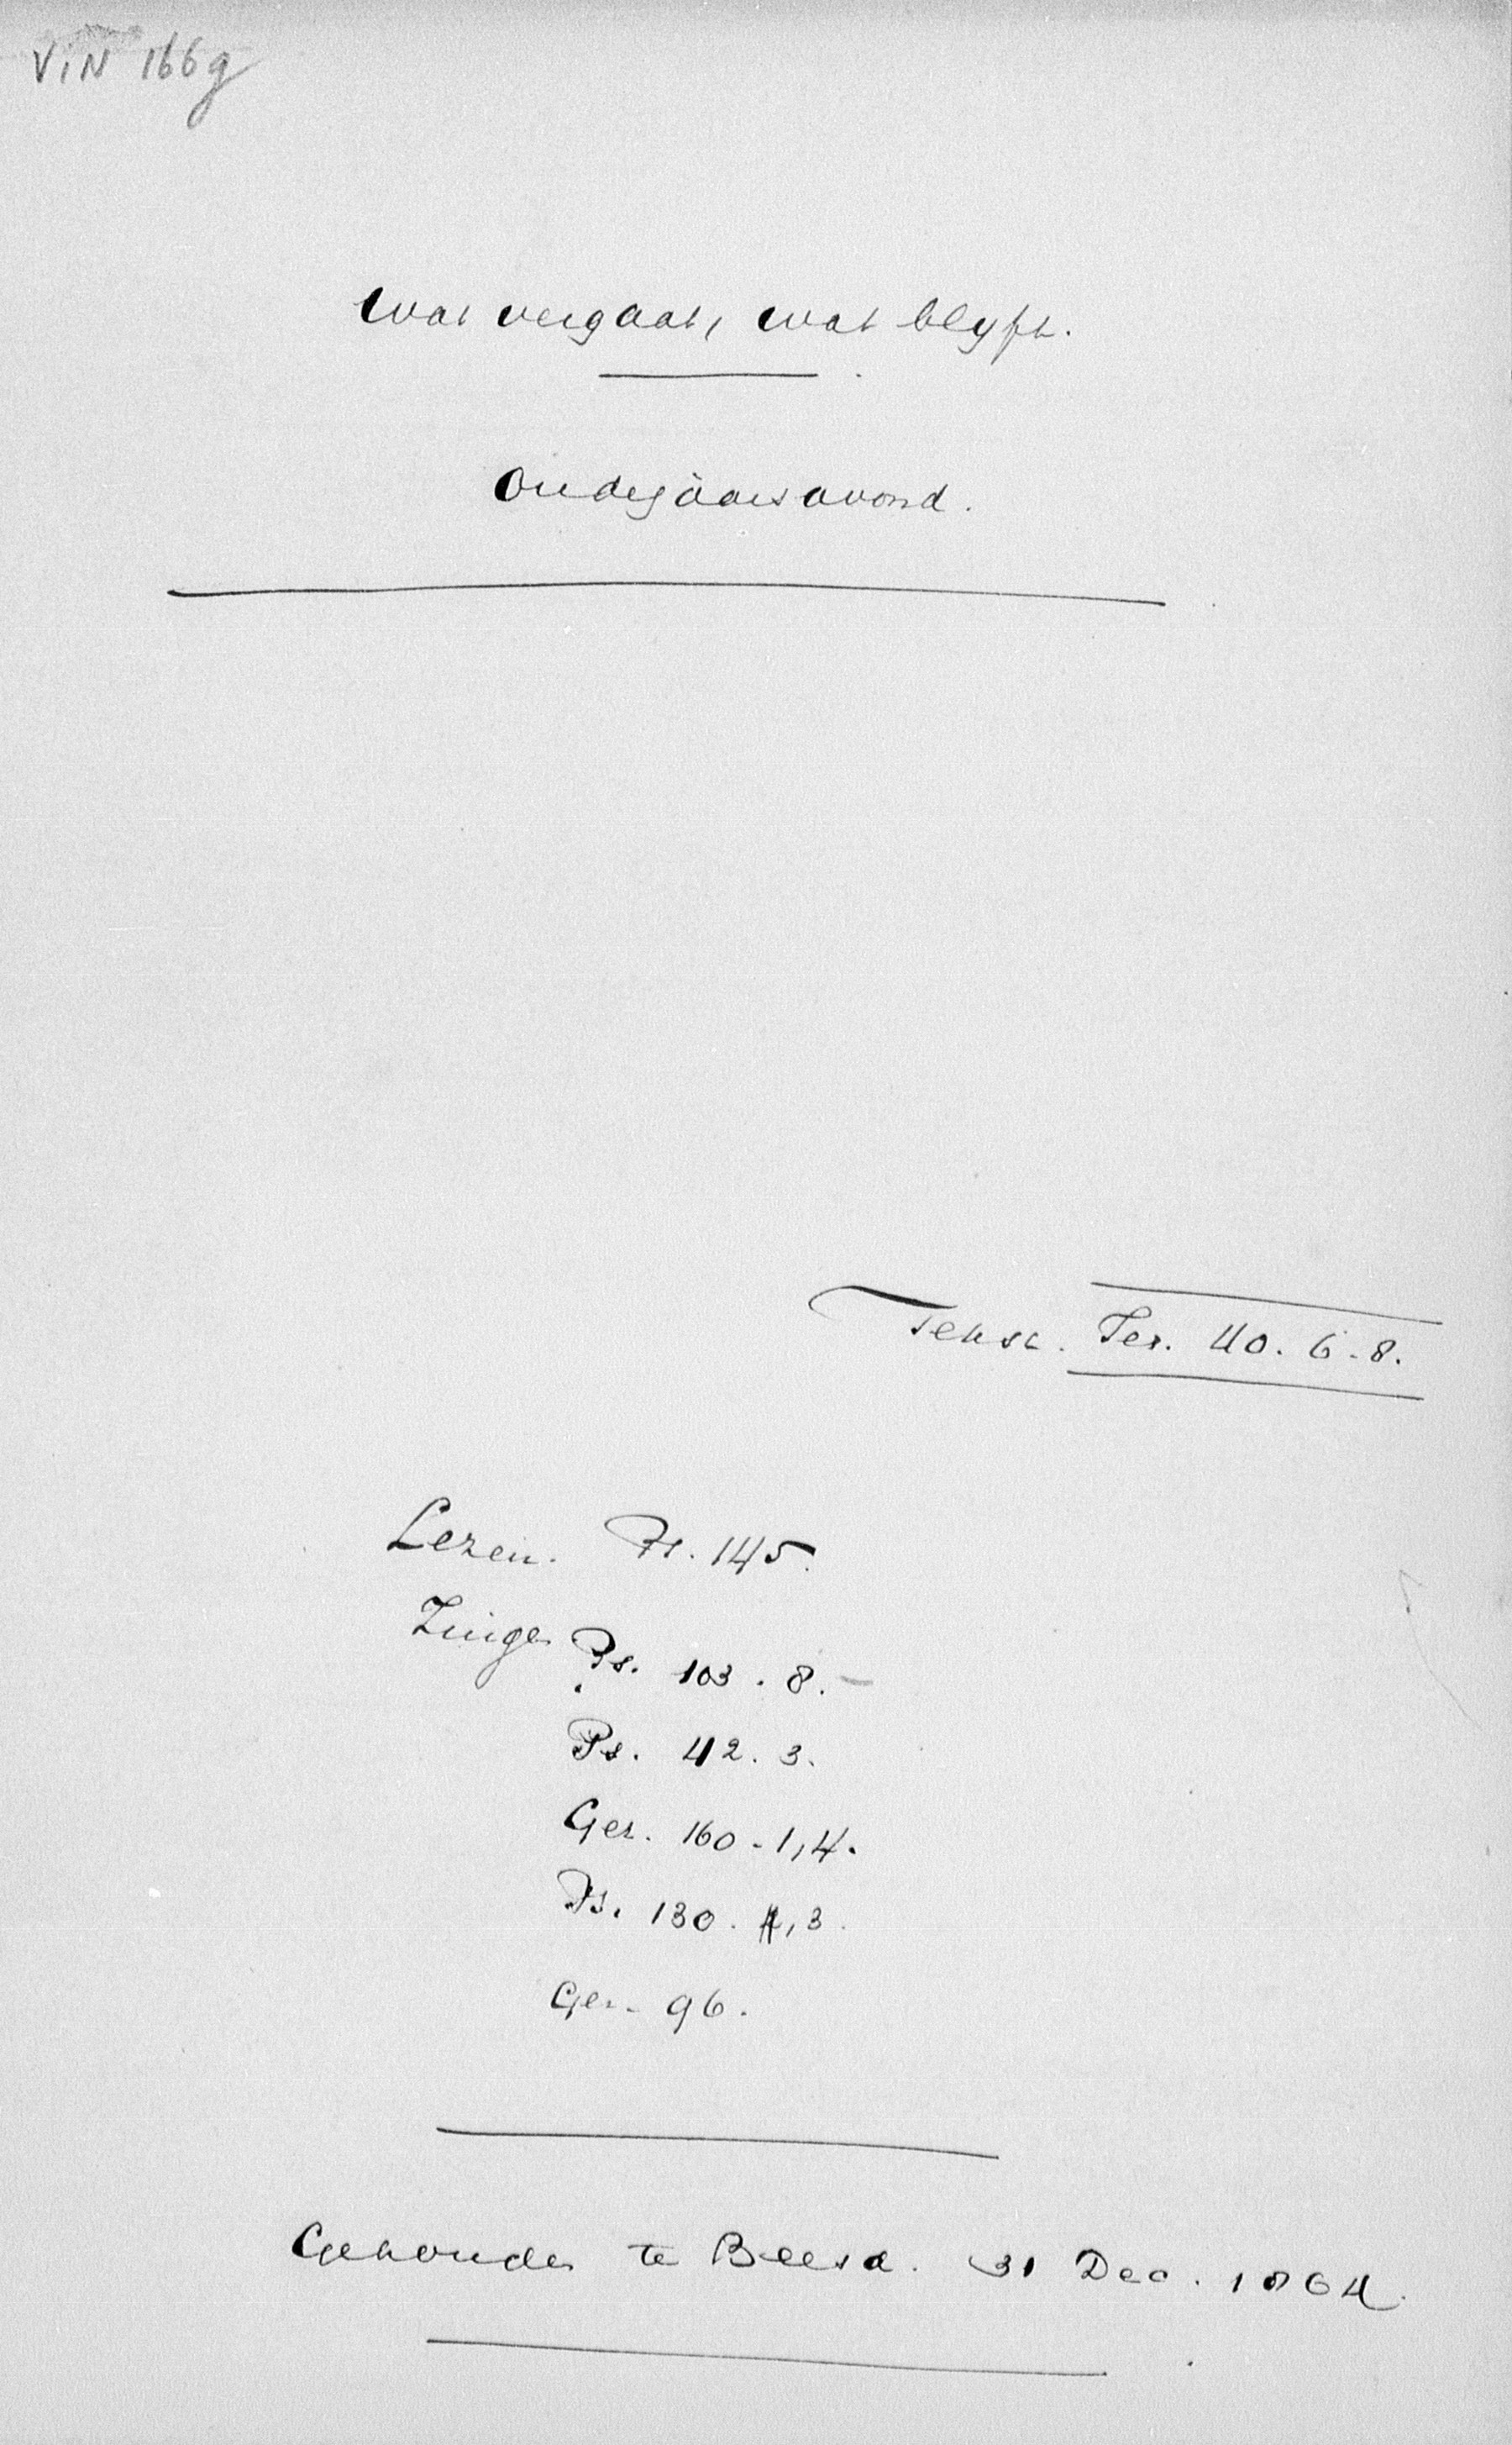 VIN 166g
Wat vergaat, wat blyft.
Oudejaarsavond.
Tekst. Jes. 40. 6-8.
Lezen. Ps. 145.
Zingen Ps. 103. 8. -
Ps. 42. 3.
Gez. 160-1,4.
Ps. 130. 3.
Gez. 96.
Gehouden te Beesd. 31 Dec. 1864.